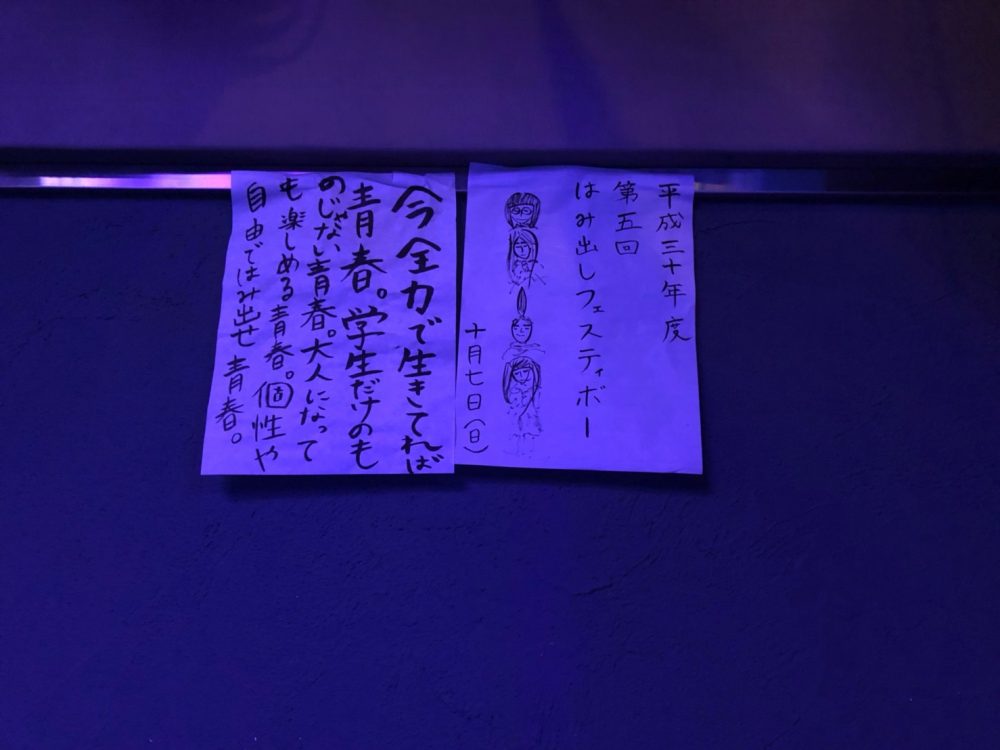 平成三十年度
第五回
はみ出しフェスティボー
十月七日(日)
今全力で生きてれば
青春。学生だけのも
のじゃない青春。大人になって
も楽しめる青春。個性や
自由ではみ出せ青春。